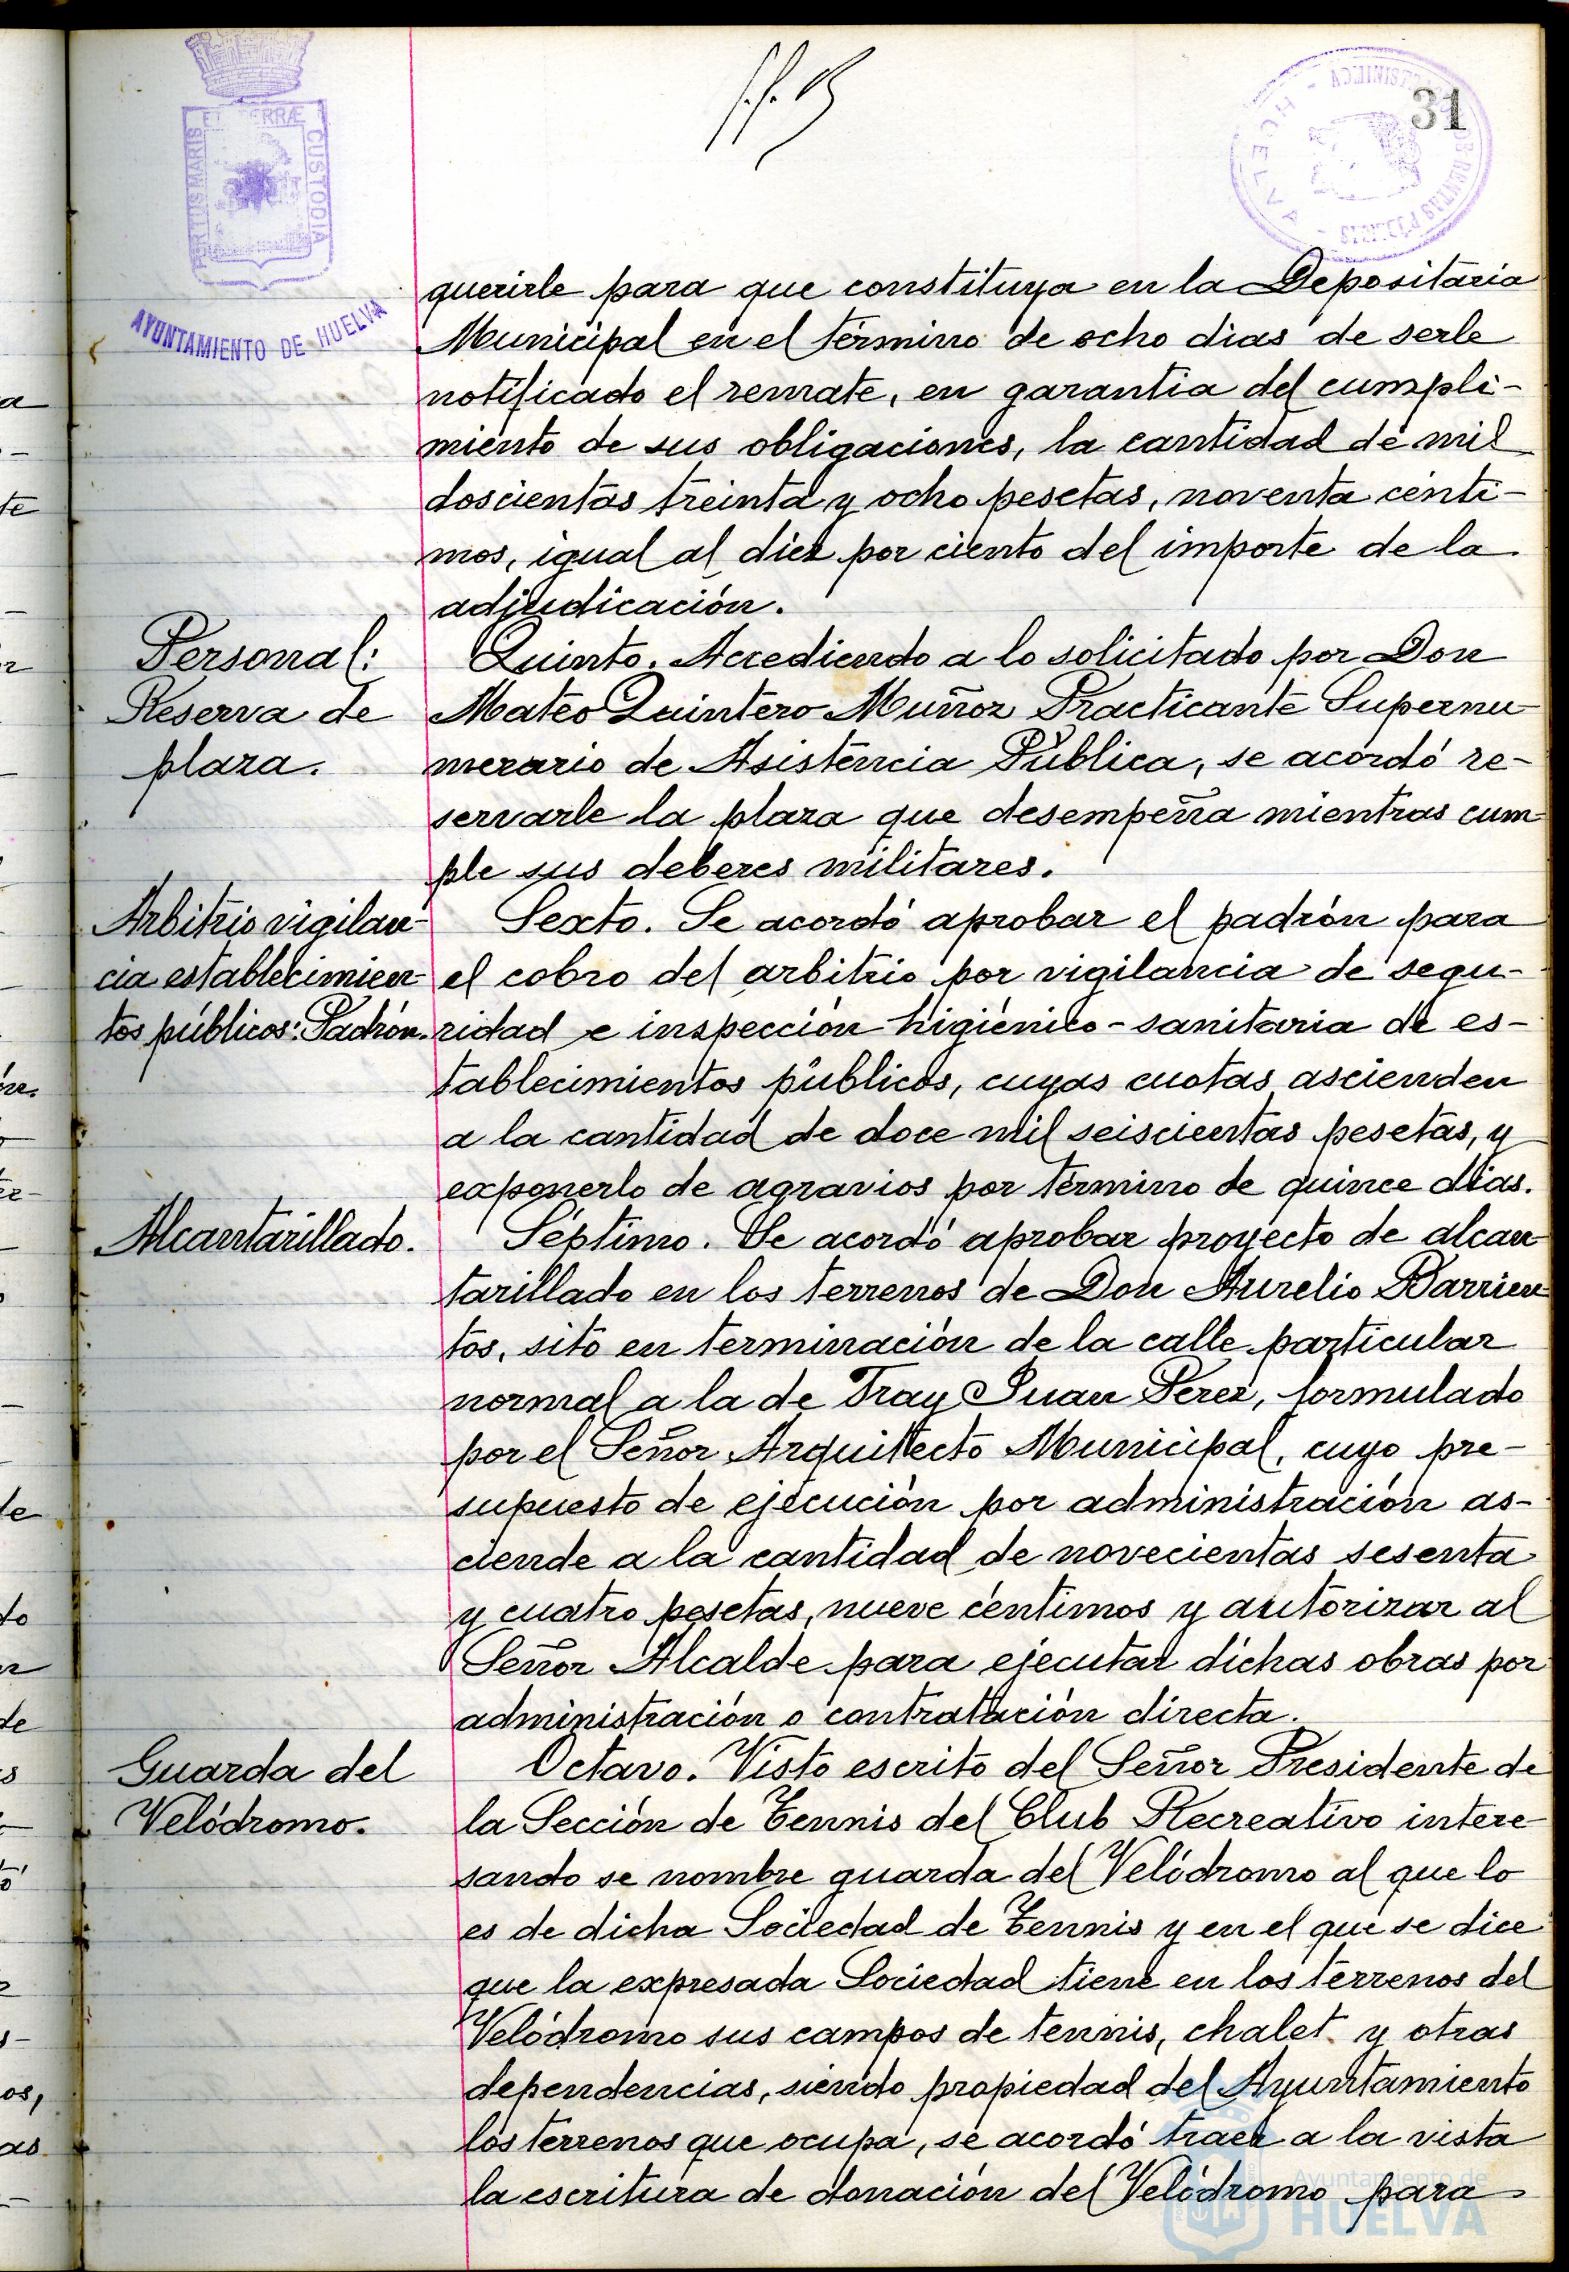 31
PORTUS MARIS ET TERRÆ CUSTODIA
AYUNTAMIENTO DE HUELVA
HUELVA
querirle para que constituya en la Depositaria
Municipal en el término de ocho dias de serle
notificado el remate, en garantia del cumpli-
miento de sus obligaciones, la cantidad de mil
doscientas treinta y ocho pesetas, noventa cénti-
mos, igual al diez por ciento del importe de la
adjudicación.
Personal:
Reserva de
plaza.
Quinto. Accediendo a lo solicitado por Don
Mateo Quintero Muñoz Practicante Supernu-
merario de Asistencia Pública, se acordó re-
servarle la plaza que desempeña mientras cum-
ple sus deberes militares.
Arbitrio vigilan-
cia establecimien-
tos públicos: Padrón.
Sexto. Se acordó aprobar el padrón para
el cobro del arbitrio por vigilancia de segu-
ridad e inspección higiénico-sanitaria de es-
tablecimientos públicos, cuyas cuotas ascienden
a la cantidad de doce mil seiscientas pesetas, y
exponerlo de agravios por término de quince dias.
Alcantarillado.
Séptimo. Se acordó aprobar proyecto de alcan-
tarillado en los terrenos de Don Aurelio Barrien-
tos, sito en terminación de la calle particular
normal a la de Fray Juan Pérez, formulado
por el Señor Arquitecto Municipal, cuyo pre-
supuesto de ejecución por administración as-
ciende a la cantidad de novecientas sesenta
y cuatro pesetas, nueve céntimos y autorizar al
Señor Alcalde para ejecutar dichas obras por
administración o contratación directa.
Guarda del
Velódromo.
Octavo. Visto escrito del Señor Presidente de
la Sección de Tennis del Club Recreativo intere-
sando se nombre guarda del Velódromo al que lo
es de dicha Sociedad de Tennis y en el que se dice
que la expresada Sociedad tiene en los terrenos del
Velódromo sus campos de tennis, chalet y otras
dependencias, siendo propiedad del Ayuntamiento
los terrenos que ocupa, se acordó traer a la vista
la escritura de donación del Velódromo para
Ayuntamiento de
HUELVA